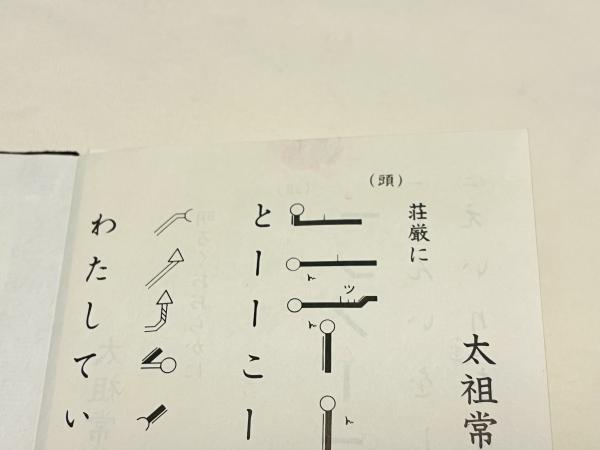 太祖常
荘厳に
(頭)
ト
ツ
ト
ト
とーーこー
わたしてい